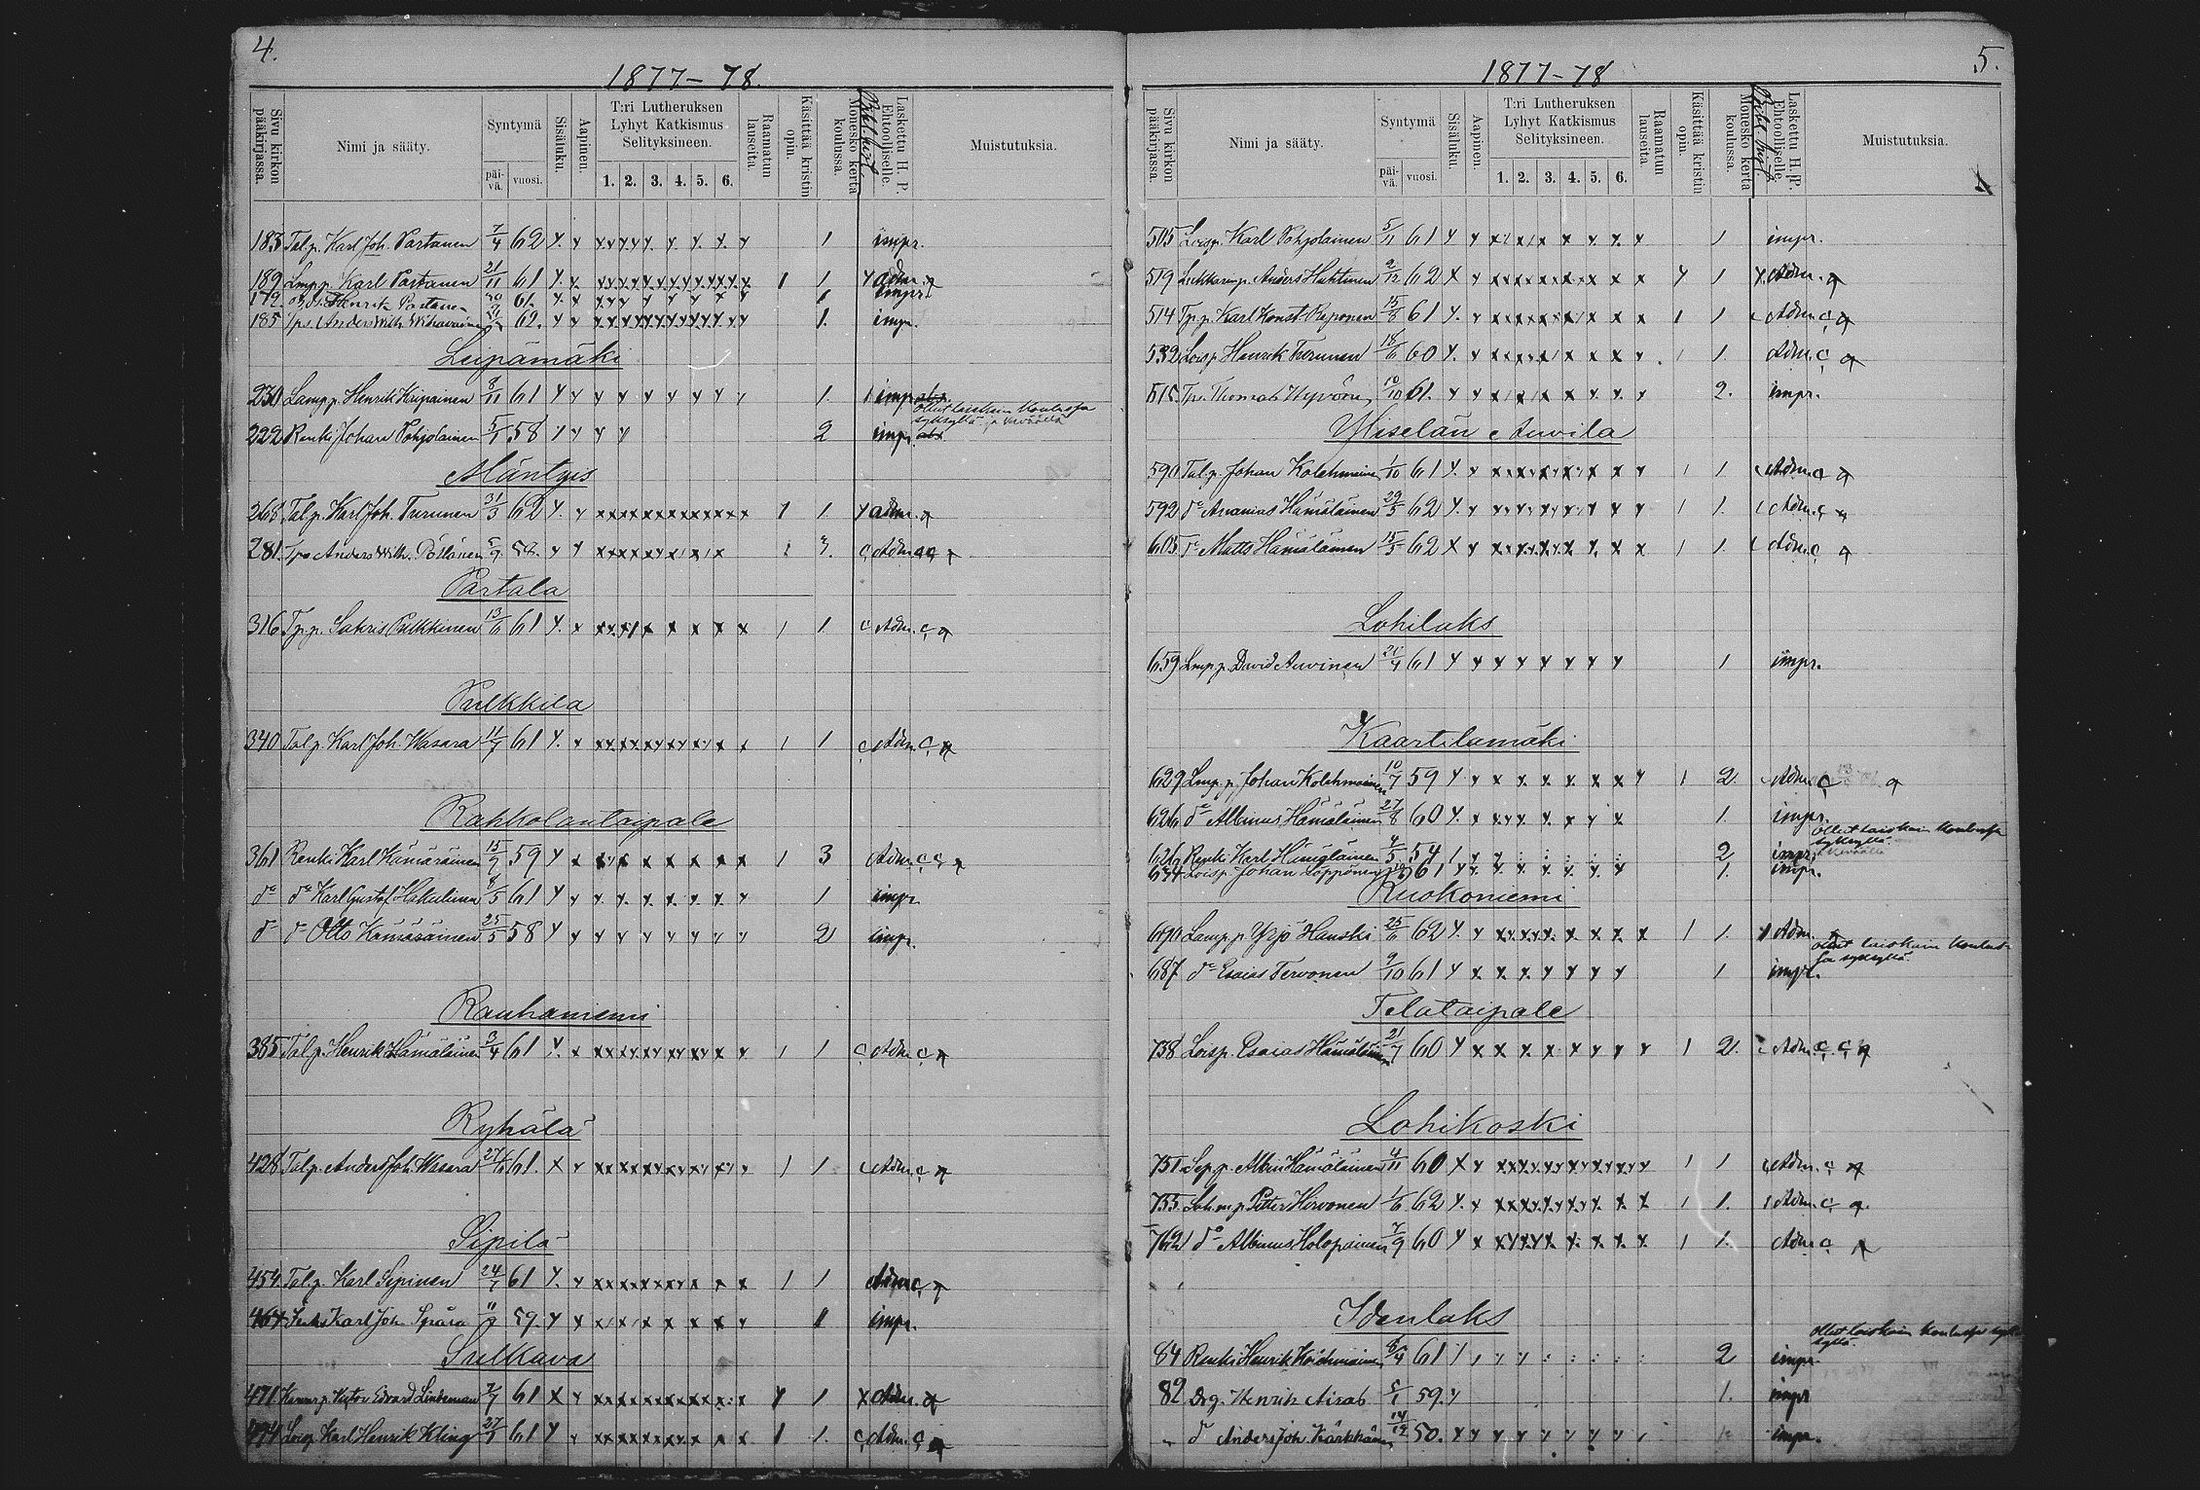 4.
1877-78.
Sivu kirkon pääkirjassa.
Nimi ja sääty.
Syntymä
päivä.
vuosi.
Sisäluku.
Aapinen.
T:ri Lutheruksen Lyhyt Katkismus Selityksineen.
1. 2. 3. 4. 5. 6.
Raamatun lauseita.
Käsittää kristin opin.
Monesko kerta koulussa.
Laskettu H. P. Ehtoolliselle.
Muistutuksia.
183 Tal.p. Karl Joh. Partanen 7/4 62 1 impr.
189 Lmp.p. Karl Partanen 21/11 61 1 1 adm.
172 Henrik Partanen 61. 1 impr.
185 Anders Wilh. 62. 1. impr.
Leipämäki
230 Lamp.p. Henrik 8/11 61 1. impr.
222 Renki Johan Pohjolainen 5/1 58 2 impr.
ollut laiskain koulussa
syksyllä ja keväällä
Mäntyis
268 Tal.p. Karl Joh. Turunen 31/3 62 1 1. adm.
281. Anders Wilh. Pöllänen 58. 3. Adm.
Partala
316 Tp.p. Sakris Pulkkinen 13/6 61 1 1. Adm.
Pulkkila
340 Tal.p. Karl Joh. Wasara 11/7 61 1 1 Adm.
Kahkolantaipale
361 Renki Karl Kämäräinen 15/7 59 1 3 Adm.
do do Karl Gustaf Hakulinen 61 1 impr.
do do Otto Kämäräinen 25/5 58 2 impr.
Rauhaniemi
385 Tal.p. Henrik Hämäläinen 3/4 61 1 1 Adm.
Ryhälä
428 Tal.p. Anders Joh. Wasara 61. 1 1 Adm.
Sipilä
454 Tal.p. Karl Sipinen 24/7 61 1 1 Adm.
464 Karl Joh. 59. 1 impr.
Sulkava
471 Viktor Edvard Lindeman 7/7 61 1 1 Adm.
474 Loisp. Karl Henrik Kling 61 1 1. Adm.
5.
1877-78
Sivu kirkon pääkirjassa.
Nimi ja sääty.
Syntymä
päivä.
vuosi.
Sisäluku.
Aapinen.
T:ri Lutheruksen Lyhyt Katkismus Selityksineen.
1. 2. 3. 4. 5. 6.
Raamatun lauseita.
Käsittää kristin opin.
Monesko kerta koulussa.
Laskettu H. P. Ehtoolliselle.
Muistutuksia.
505 Loisp. Karl Pohjolainen 5/11 61 1 impr.
519 Lukkarinp. Anders Huhtinen 9/12 62 1 Adm.
514 Tp.p. Karl Konst. Reponen 15/8 61 1 1 Adm.
532 Loisp. Henrik Turunen 18/6 60 1 1. Adm.
515 Thomas Hyvönen 10/10 61. 2. impr.
Ylisselän Auvila
590 Tal.p. Johan Kolehmainen 1/10 61 1 1. Adm.
592 do Ananias Hämäläinen 29/5 62 1 1. Adm.
605 do Matts Hämäläinen 15/5 62 1 1. Adm.
Lohilaks
659 Lmp.p. David Auvinen 61 1 impr.
Kaartilamäki
629 Lmp.p. Johan Kolehmainen 10/7 59 1 2. Adm.
626 do Albinus Hämäläinen 27/8 60 1. impr.
626 Renki Karl Hämäläinen 4/5 54 2 impr.
ollut laiskain koulussa
syksyllä
keväällä
634 Loisp. Johan Loppönen 61 1. impr.
Ruokoniemi
690 Lamp.p. Yrjö Hanski 25/6 62 1 1. Adm.
687 do Esaias Tervonen 9/10 61 1 impr.
ollut laiskain koulus-
sa syksyllä
Telataipale
738 Loisp. Esaias Hämäläinen 21/7 60 1 2. Adm.
Lohikoski
751 Sep.p. Albin Hämäläinen 4/11 60 1 1 Adm.
755 Petter Hirvonen 1/6 62 1 1. Adm.
762 do Albinus Holopainen 7/9 60 1 1. Adm.
Idenlaks
84 Renki Henrik Kolehmainen 61 2 impr.
ollut laiskain koulussa syk-
syllä.
82 Drg. Henrik 59. 1. impr
do Anders Joh. Kärkkäinen 14/12 50. impr.